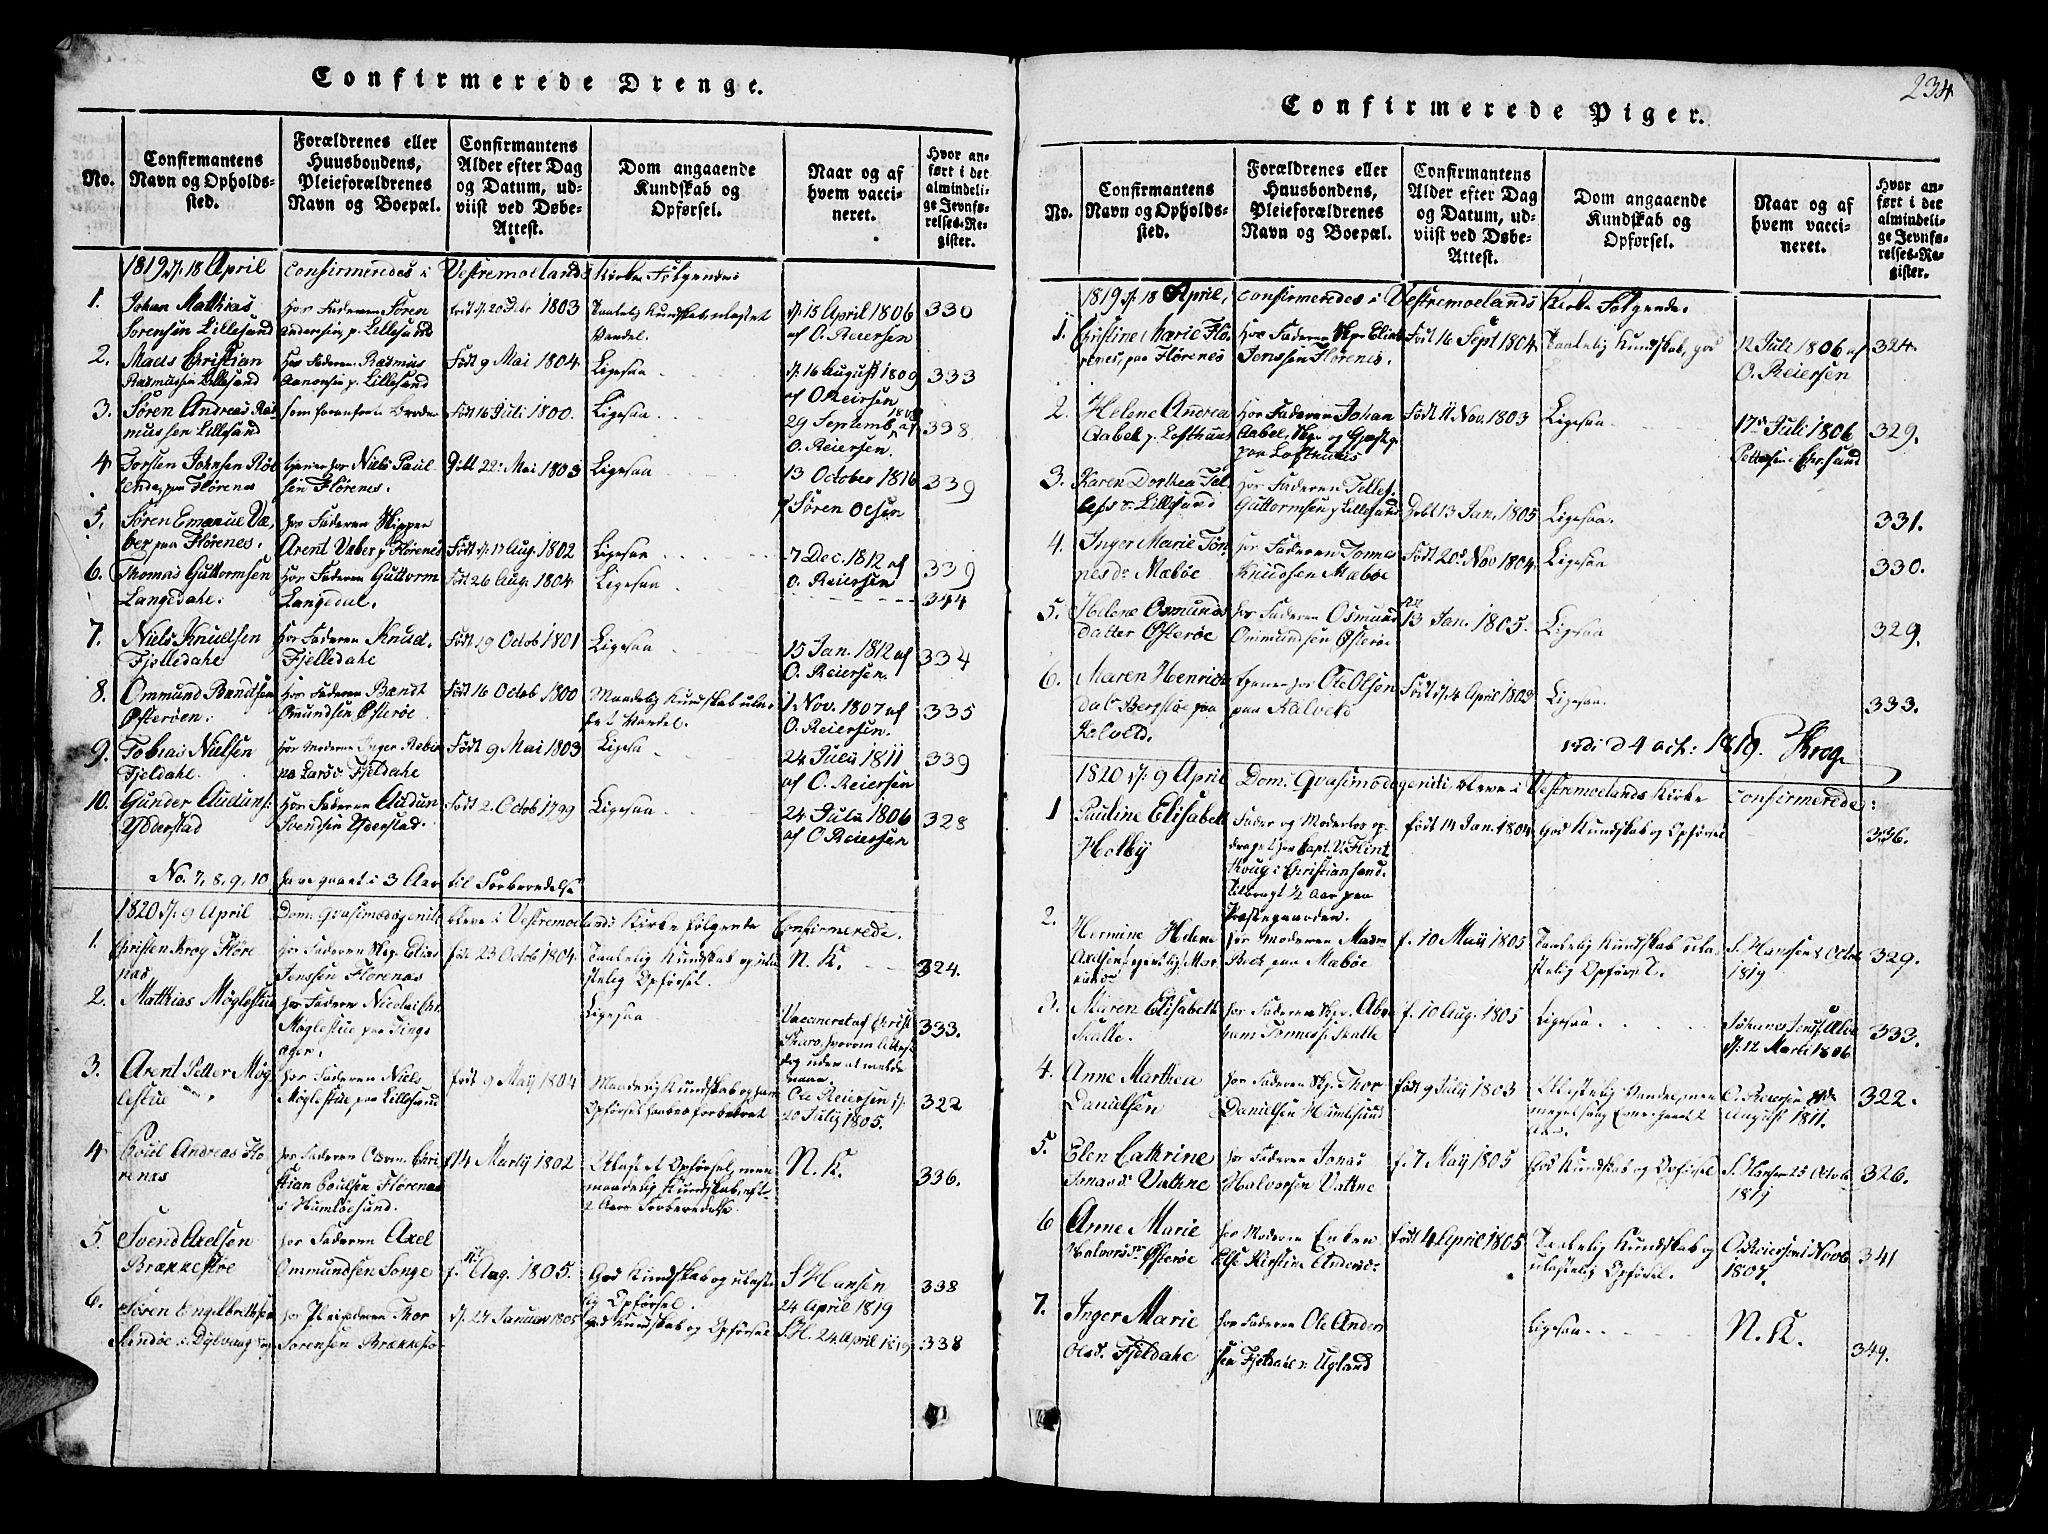 234
Confirmerede Drenge.
No.
Confirmantens
Navn og Opholds-
sted.
Forældrenes eller
Huusbondens,
Pleieforældrenes
Navn og Boepæl.
Confirmantens
Alder efter Dag
og Datum, ud-
viist ved Døbe-
Attest.
Dom angaaende
Kundskab og
Opførsel.
Naar og af
hvem vacci-
neret.
Hvor an-
ført i det
almindeli-
ge Jevnfø-
relses-Re-
gister.
1819 d. 18 April confirmeredes i Vestremoelands Kirke Følgende:
1. Johan Matthias
Sørensen Lillesand
hos Faderen Søren
Andersen p. Lillesand
1803
d. 15 April 1806
af O. Reiersen
330
2. Mads Christian
Rasmussen Lillesand
hos Faderen Rasmus
Aanonsen p. Lillesand
Født 9 Mai 1804
Ligesaa
d. 16 August 1809
af O Reiersen
333
3. Søren Andreas Ras
mussen Lillesand
Født 16 Juli 1800.
Ligesaa
29 Septemb. af
O. Reiersen.
338
4. Torsten Johnsen
paa Flørenes
tjener hos Niels Paul
sen Flørenes.
Født 22 Mai 1803
Ligesaa
13 October 1816
Søren Olsen
339
5. Søren Emanuel Væ
ber paa Flørenes.
hos Faderen Skipper
Arent Væber p Flørenes
Født d. 17 Aug. 1802
Ligesaa
7 Dec. 1812 af
O. Reiersen
339
6. Thomas Guttormsen
Langedahl.
hos Faderen Guttorm
Langedal.
Født 26 Aug. 1804
Ligesaa
344
7. Niels Knudsen
Fjelledahl
hos Faderen Knud
Fjelledahl
Født 19 Octob 1801
Ligesaa
15 Jan. 1812 af
O. Reiersen.
334
8. Ommund Bændtsen
Østerøen.
hos Faderen Bændt
Omundsen Østerøe
Født 16 Octob 1800
Maadelig Kundskab
1 Nov. 1807 af
O. Reiersen.
335
9. Tobias Nielsen
Fjeldahl.
hos Moderen Inger
Larsd. Fjeldahl
Født 9 Mai 1803
Ligesaa
24 Julii 1811
af O. Reiersen
339
10. Gunder Auduns:
Ydderstad
hos Faderen Audun
Svendsen Yderstad.
Født 2 Octob 1799
Ligesaa
24 Julii 1806
af O Reiersen
328
No. 7, 8, 9, 10 have gaaet i 3 Aar til Forberedelse
1820 d. 9 April Dom: Qvasimodogeniti bleve i Vestremoelands Kirke følgende Confirmerede.
1. Christen Krog Fløre
næs
hos Faderen Skp. Elias
Jenssen Florenæs
født 23 Octob 1804
Taalelig Kundskab og ula
stelig Opførsel.
N. K.
324.
2. Matthias Møglestue
hos Faderen Nicolai Chr.
Møglestue paa Tinge
Ligesaa
Vaccineret af Christ
333.
3. Arent Petter Møg
lestue
hos Faderen Niels
Møglestue paa Lillesand
født 9 May 1804
Maadelig Kundskab og
Opførsel
Ole Reiersen d.
20 July 1805.
322
4 Poul Andreas Flo
renæs
hos Faderen
stian Poulsen Florenæs
i Humlesund.
14 Marty 1802
Ulastet Opførsel, men
maadelig Kundskab,
2 Aars Forberedelse.
N. K.
336.
5. Svend Axelsen
Brækkestøe
hos Faderen Axel
Ommundsen Songe
f. Aug. 1805.
God Kundskab og ulaste
lig Opførsel.
S Hansen
24 April 1819
338
6. Søren Engelbrektsen
Sandøe
hos Pleiefaderen Thor
Sørensen Brækkestø
d. 27 Januar 1805
God Kundskab og Opførsel
S.H. 24 April 1819
338
Confirmerede Piger.
No.
Confirmantens
Navn og Opholds-
sted.
Forældrenes eller
Huusbondens,
Pleieforældrenes
Navn og Boepæl.
Confirmantens
Alder efter Dag
og Datum, ud-
viist ved Døbe-
Attest.
Dom angaaende
Kundskab og
Opførsel.
Naar og af
hvem vacci-
neret.
Hvor an-
ført i det
almindeli-
ge Jevnfø-
relses-Re-
gister.
1819 d. 18 April, confirmeredes i Vestremoelands Kirke Følgende.
1. Christine Marie Flø
renes, paa Flørenes
hos Faderen Skpr Elias
Jenssen Flørenes.
Født 16 Sept 1804.
Taalelig Kundskab, god
12 Juli 1806 af
O. Reiersen
324.
2. Helene Andrea
Aabel p. Lofthuus
hos Faderen Johan
Aabel, Skpr og Gjæstg.
paa Lofthuus
Født 11 Nov. 1803
Ligesaa
17 Juli 1806
329.
3. Karen Dorthea Tel
lefs Dr. Lillesand
hos Faderen Tellef
Guttormsen p Lillesand
Døbt 13 Jan. 1805
Ligesaa.
331.
4. Inger Marie Tøn
nesdr Mæbøe
hos Faderen Tønnes
Knudsen Mæbøe
Født 20 Nov 1804.
Ligesaa
330.
5. Helene Osmunds
datter Østerøe
hos Faderen Osmund
Østerøe
13 Jan. 1805.
Ligesaa
329.
6. Maren Henrichs
datr Bergstøe paa
Kalveld.
tjener hos Ole Olsen
paa Kalveld
Født d. 4 April 1803
Ligesaa.
333.
vidi d 4 oct: 1819. Krog
1820 d. 9 April Dom. Qvasimodogeniti bleve i Vestremoelands Kirke confirmerede:
1 Pauline Elisabeth
Holby
Fader og Moderløs op
draget hos Capt. V. Flint
i Christiansand.
tilbragt ½ Aar paa
Præstegaarden.
født 14 Jan. 1804
God Kundskab og Opførsel
336.
2. Hermine Helene
Axelsen
hos Moderen Madm
Beck paa Mæbøe
f. 10 May 1805
Taalelig Kundskab ula
stelig Opførsel.
S. Hanssen 8 Octob
1819
329.
3. Maren Elisabeth
Skalle.
hos Faderen Skpr. Abra
ham Tønness. Skalle
f. 10 Aug. 1805
Ligesaa.
d. 12 Martii 1806
333.
4. Anne Marthea
Danielsen
hos Faderen Skp. Thor
Danielsen Humlesund
født 9 July 1803
Ulastelig Vandel, men
O. Reiersen
August 1811.
322.
5. Elen Cathrine
Jonasdr Vattne
hos Faderen Jonas
Halvorsen Vattne
f. 7 May 1805
God Kundskab og Opførsel
S. Hansen 25 Octob
1819
326.
6 Anne Marie
Halvorsdr Østerøe
hos Moderen Enken
Else Kirstine Andersdr
født 4 April 1805
Taalelig Kundskab og
ulastelig Opførsel.
O. Reiersen 1 Novb
1807.
341
7. Inger Marie
Olsd. Fjeldahl
hos Faderen Ole Ander
sen Fjeldahl v. Ugland
Ligesaa
N. K.
349.